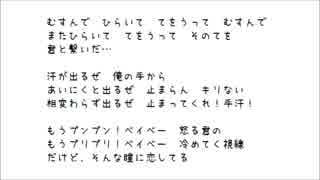 むすんで　ひらいて　てをうって　むすんで
またひらいて　てをうって　そのてを
君と繋いだ…
汗が出るぜ　俺の手から
あいにくと出るぜ　止まらん　キリない
相変わらず出るぜ　止まってくれ！手汗！
もうプンプン！ベイベー　怒る君の
もうプリプリ！ベイベー　冷めてく視線
だけど、そんな瞳に恋してる